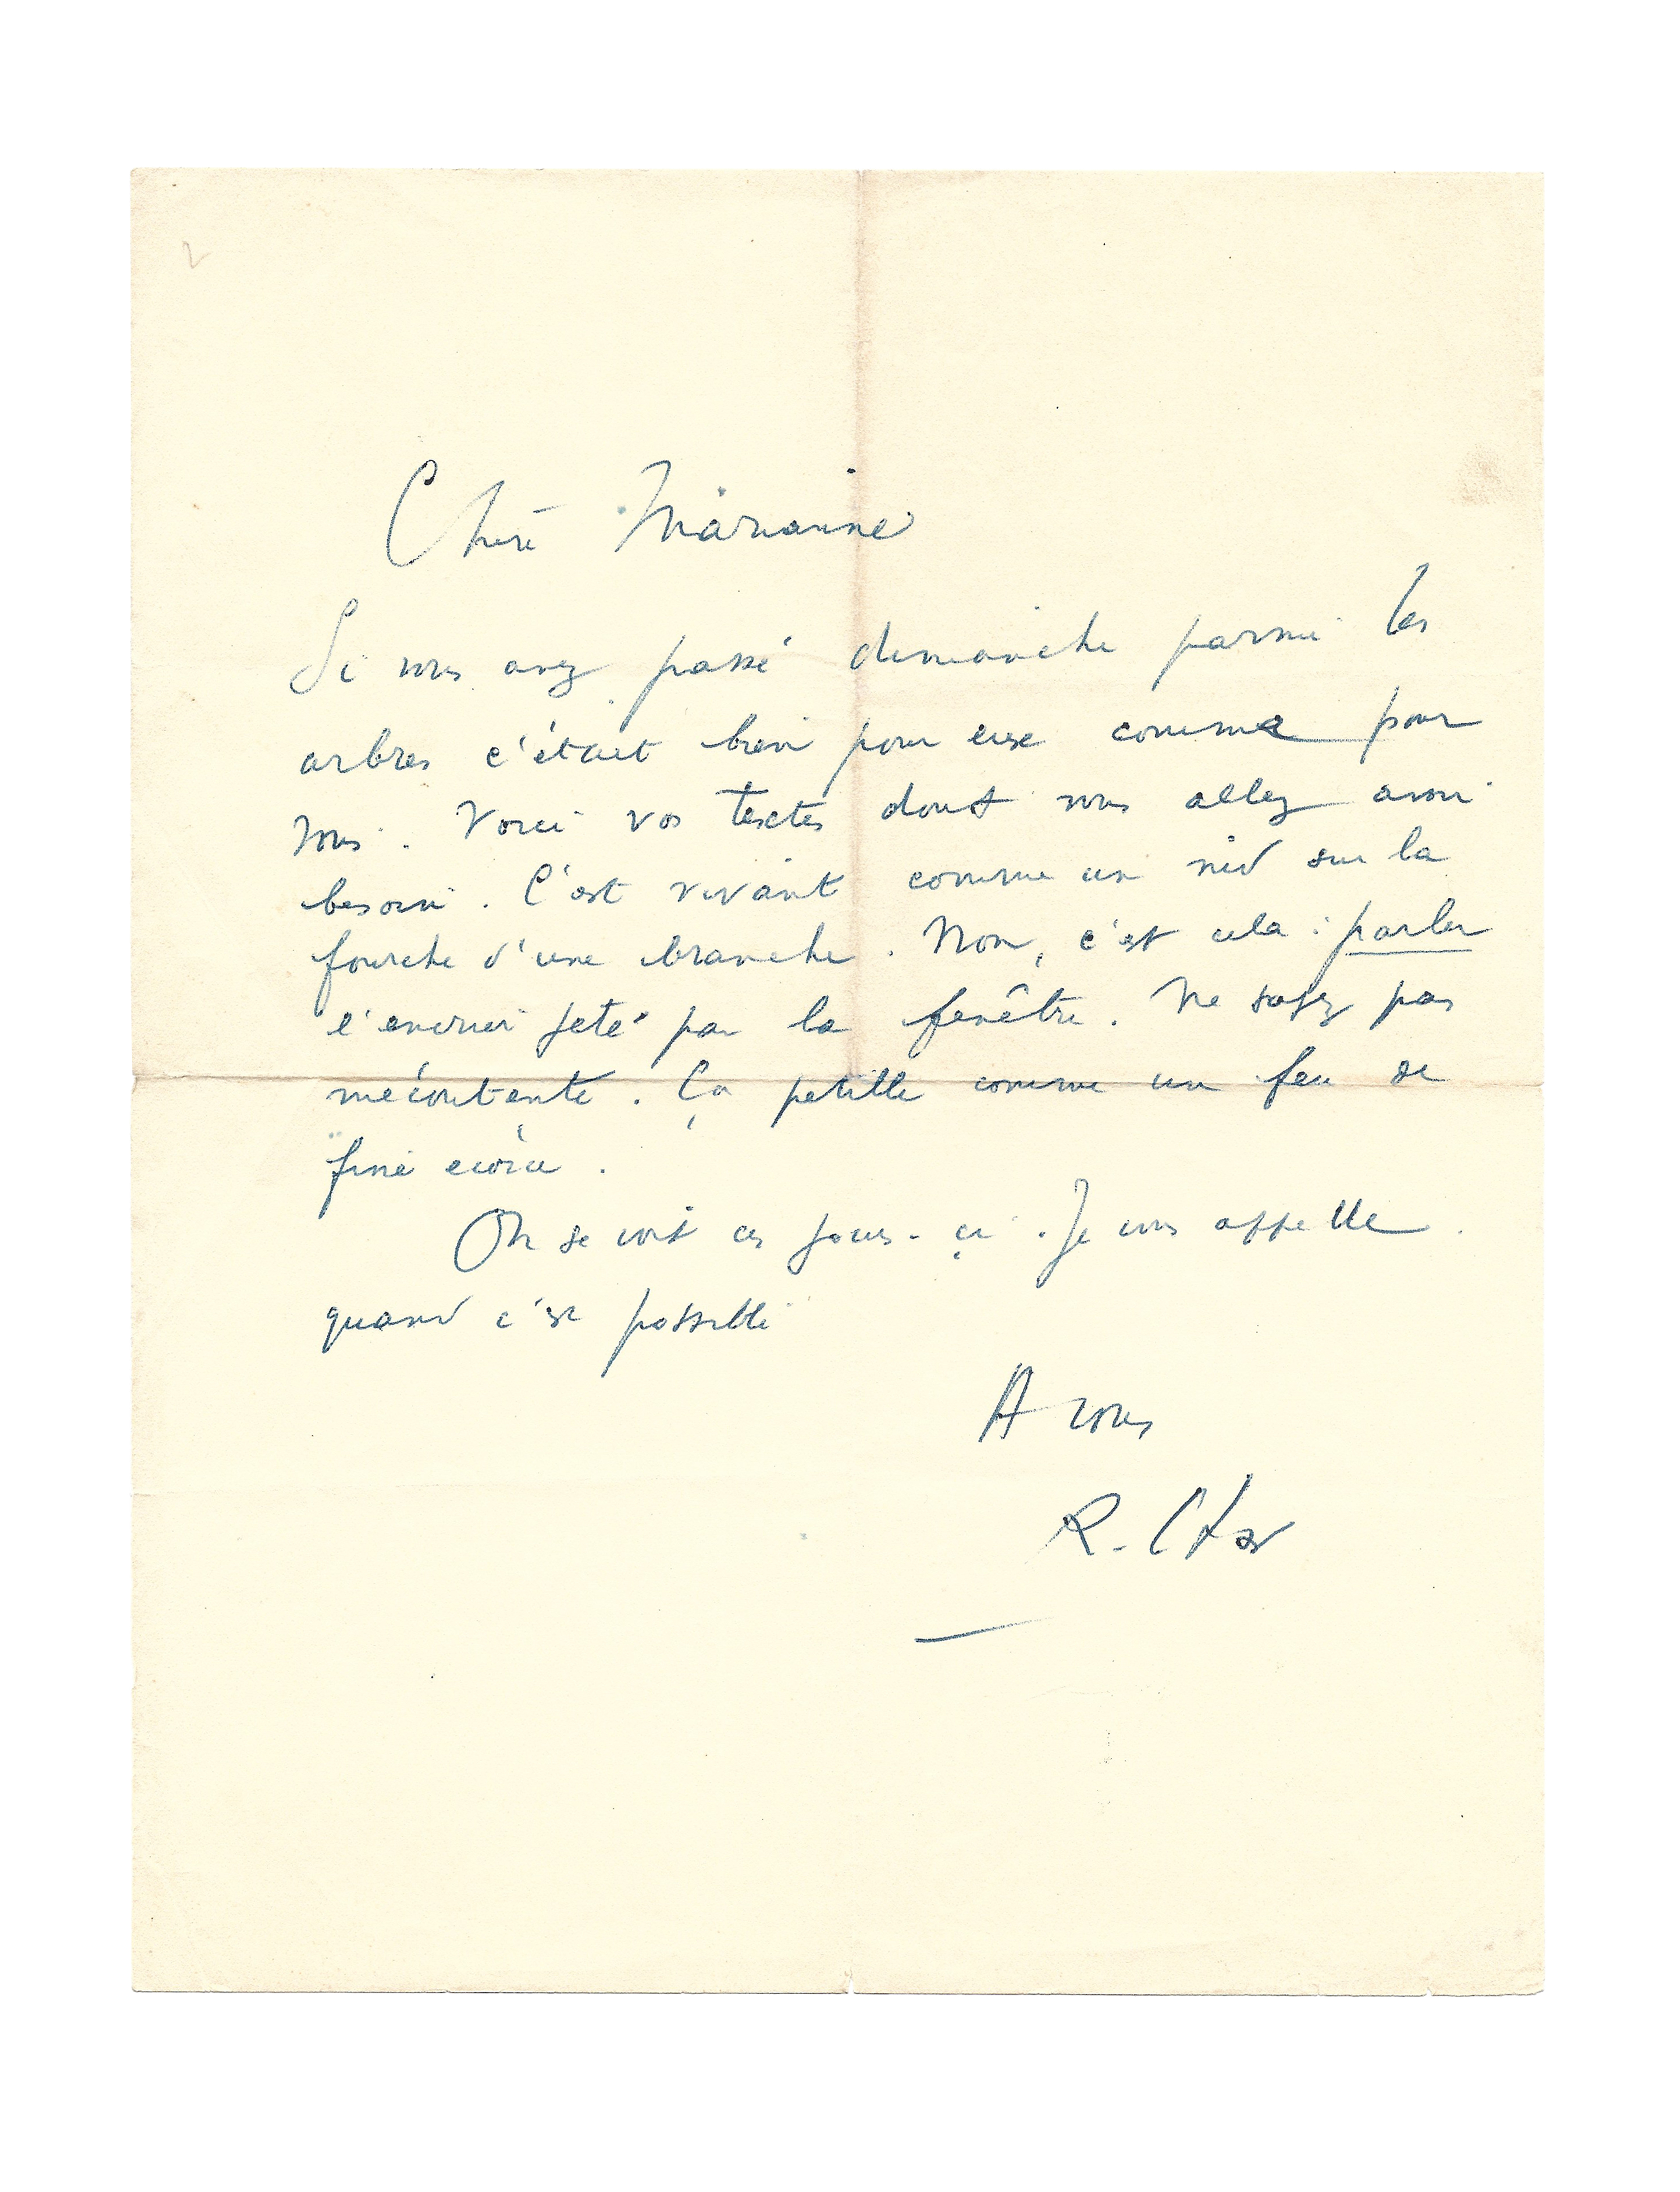 Chère Marianne
Si vous avez passé dimanche parmi les
arbres c'était bien pour eux comme pour
vous. Voici vos textes dont vous allez avoir
besoin. C'est vivant comme un nid sur la
fourche d'une branche. Non, c'est cela : parler
l'encrier jeté par la fenêtre. Ne soyez pas
mécontente. Ça petille comme un feu de
fine écorce.
On se voit ces jours-ci. Je vous appelle
quand c'est possible
A vous
R. Char